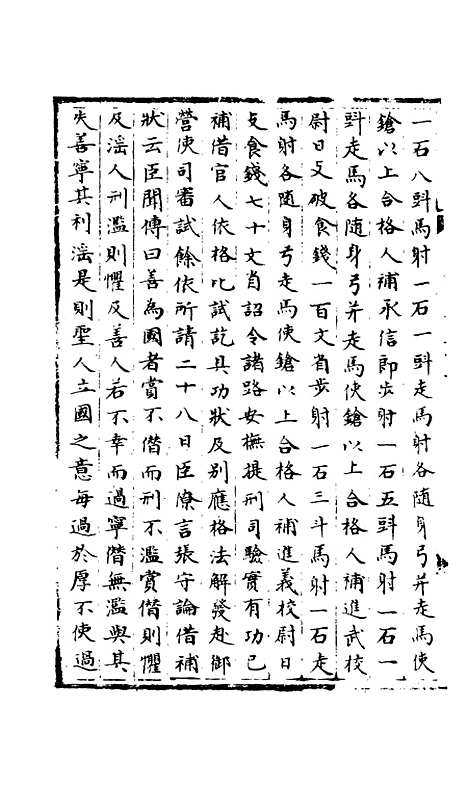 一石八㪷馬射一石一㪷走馬射各随身弓并走馬使
鎗以上合格人補承信郎步射一石五㪷馬射一石一
㪷走馬各随身弓并走馬使鎗以上合格人補進武校
尉日支破食錢一百文省步射一石三斗馬射一石走
馬射各随身弓走馬使鎗以上合格人補進義校尉日
支食錢七十文省詔令諸路安撫提刑司驗實有功已
補借官人依格比試訖具功狀及别應格法解發赴御
營使司審試餘依所請二十八日臣寮言張守論借補
狀云臣聞傳曰善為國者賞不僭而刑不濫賞僭則懼
及滛人刑濫則懼及善人若不幸而過寧僭無濫與其
失善寧其利滛是則聖人立國之意每過於厚不使過